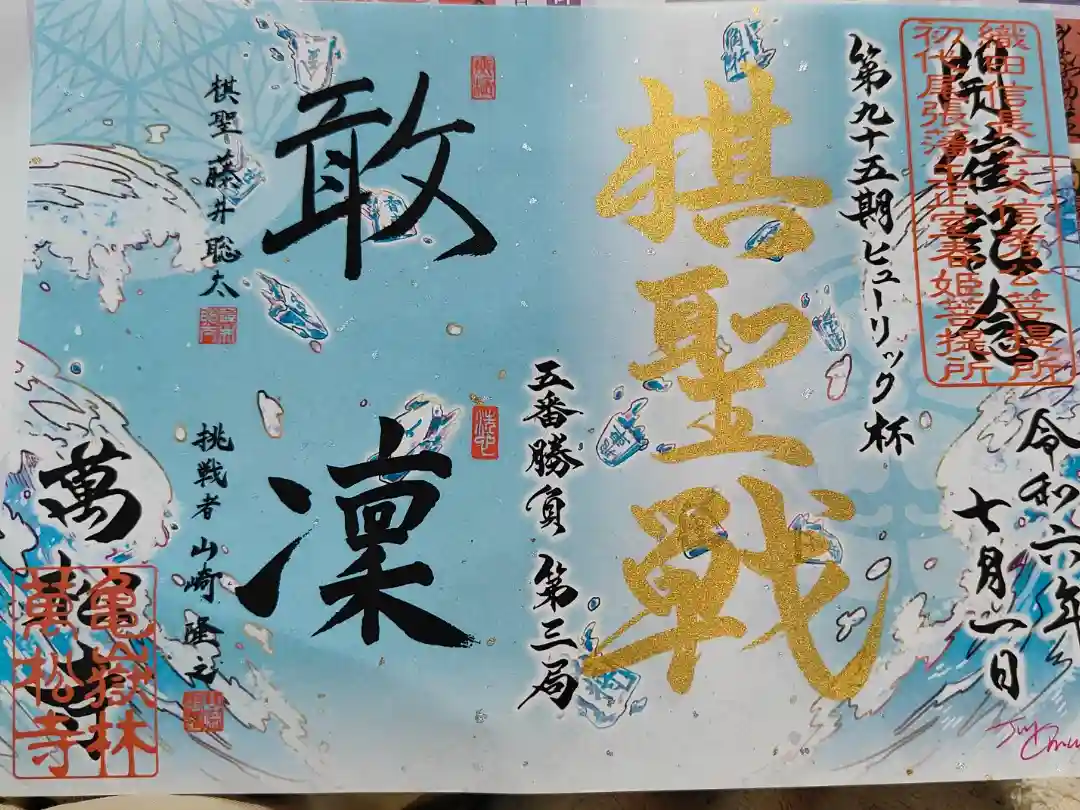 開催記念
織田信長公父信秀公菩提所
初代尾張藩主正室春姫菩提所
令和六年
七月一日
第九十五期ヒューリック杯
棋聖戦
五番勝負 第三局
敢
凜
棋聖 藤井聡太
挑戦者 山崎隆之
萬松寺
亀嶽林
萬松寺